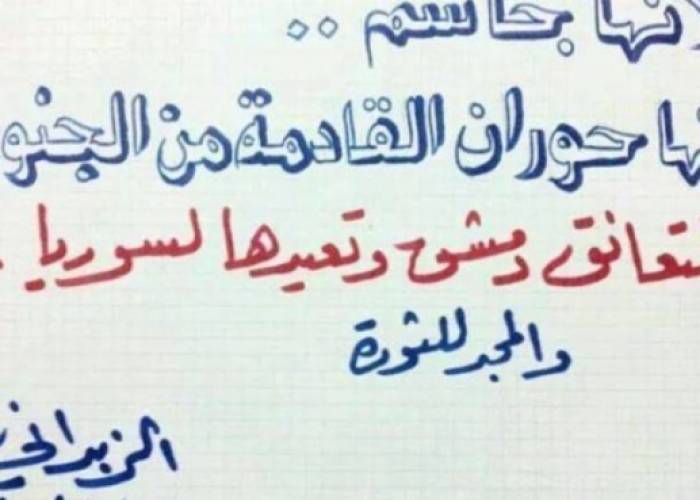 لأنها جاسم ..
لأنها حوران القادمة من الجنو
ستعانق دمشق وتعيدها لسوريا .
والمجد للثورة
الزبداني